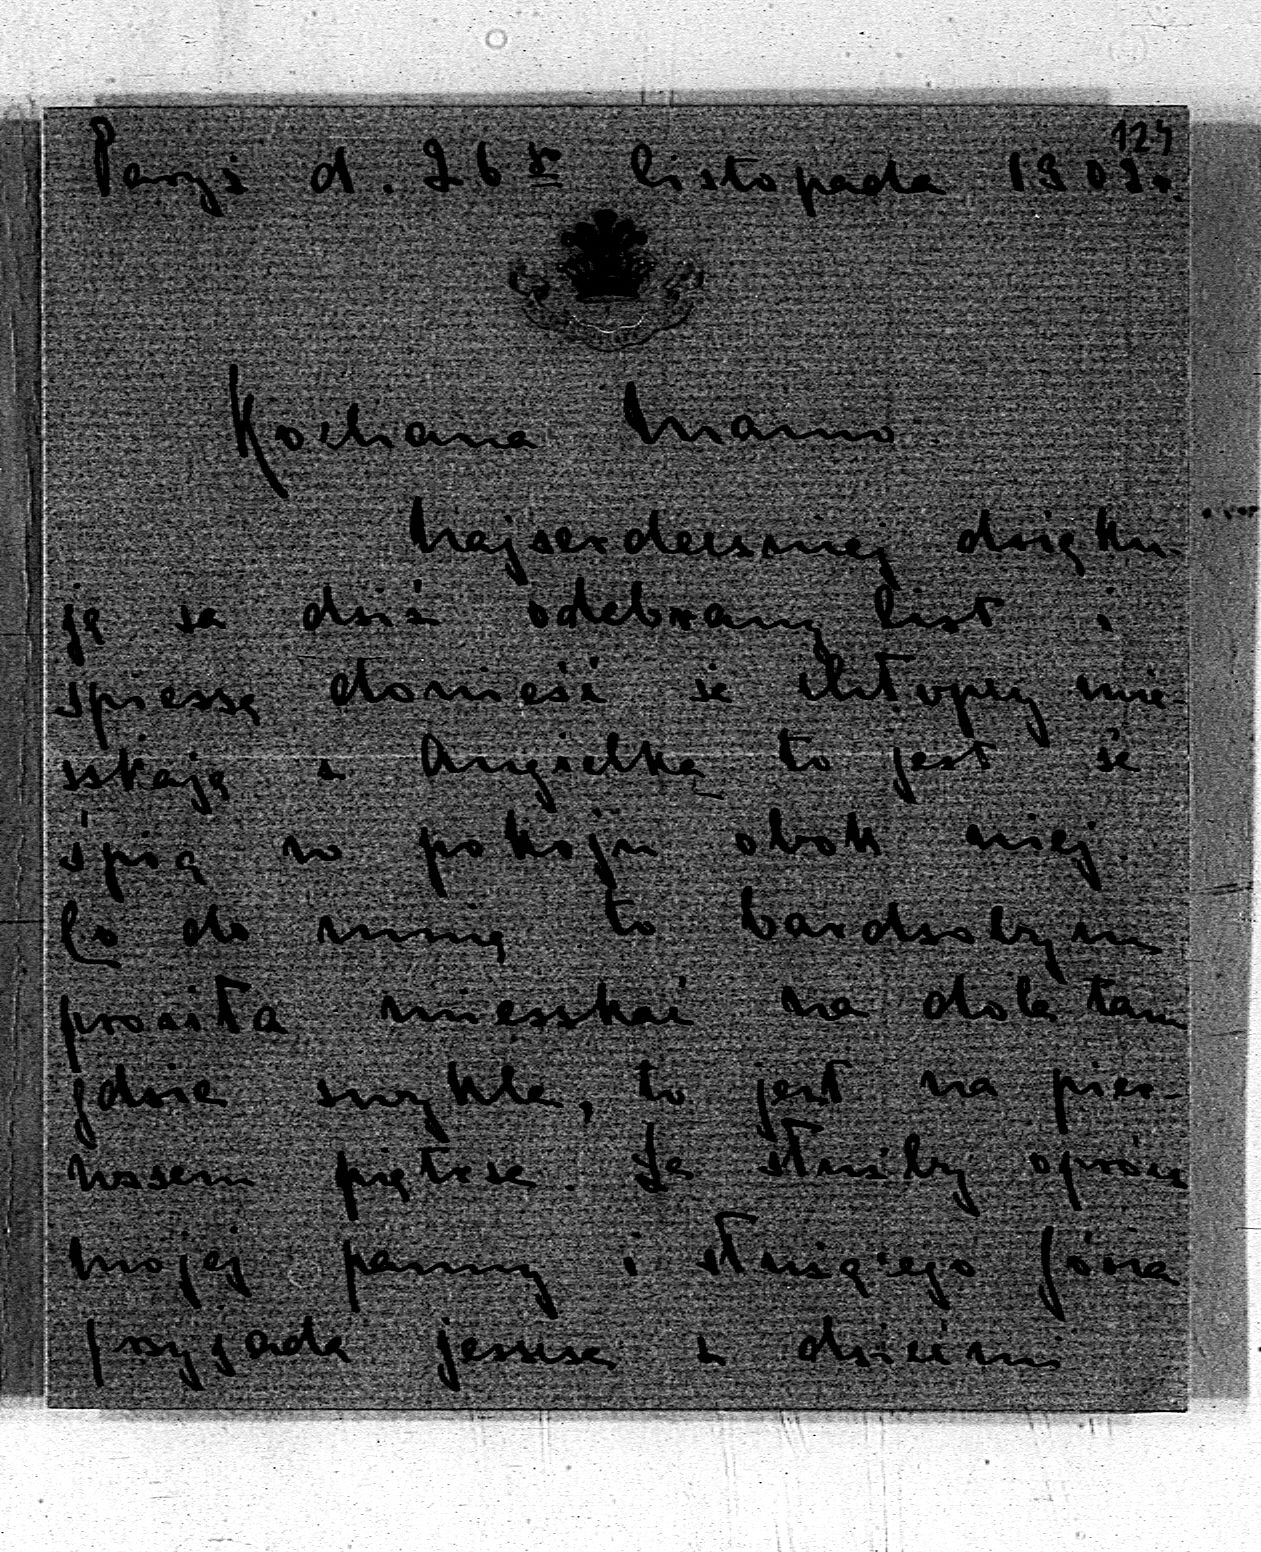 124
Paryż d. 26go listopada 1909.
Kochana Mamo
Najserdeczniej dzięku-
ję za dziś odebrany list i
spieszę donieść że chłopcy mie-
szkają z Angielką to jest że
śpią w pokoju obok niej.
Co do mnie to bardzobym
prosiła mieszkać na dole tam
gdzie zwykle, to jest na pier-
wszem piętrze. Ze służby oprócz
mojej panny i służącego Józia
przyjadą jeszcze z dziećmi